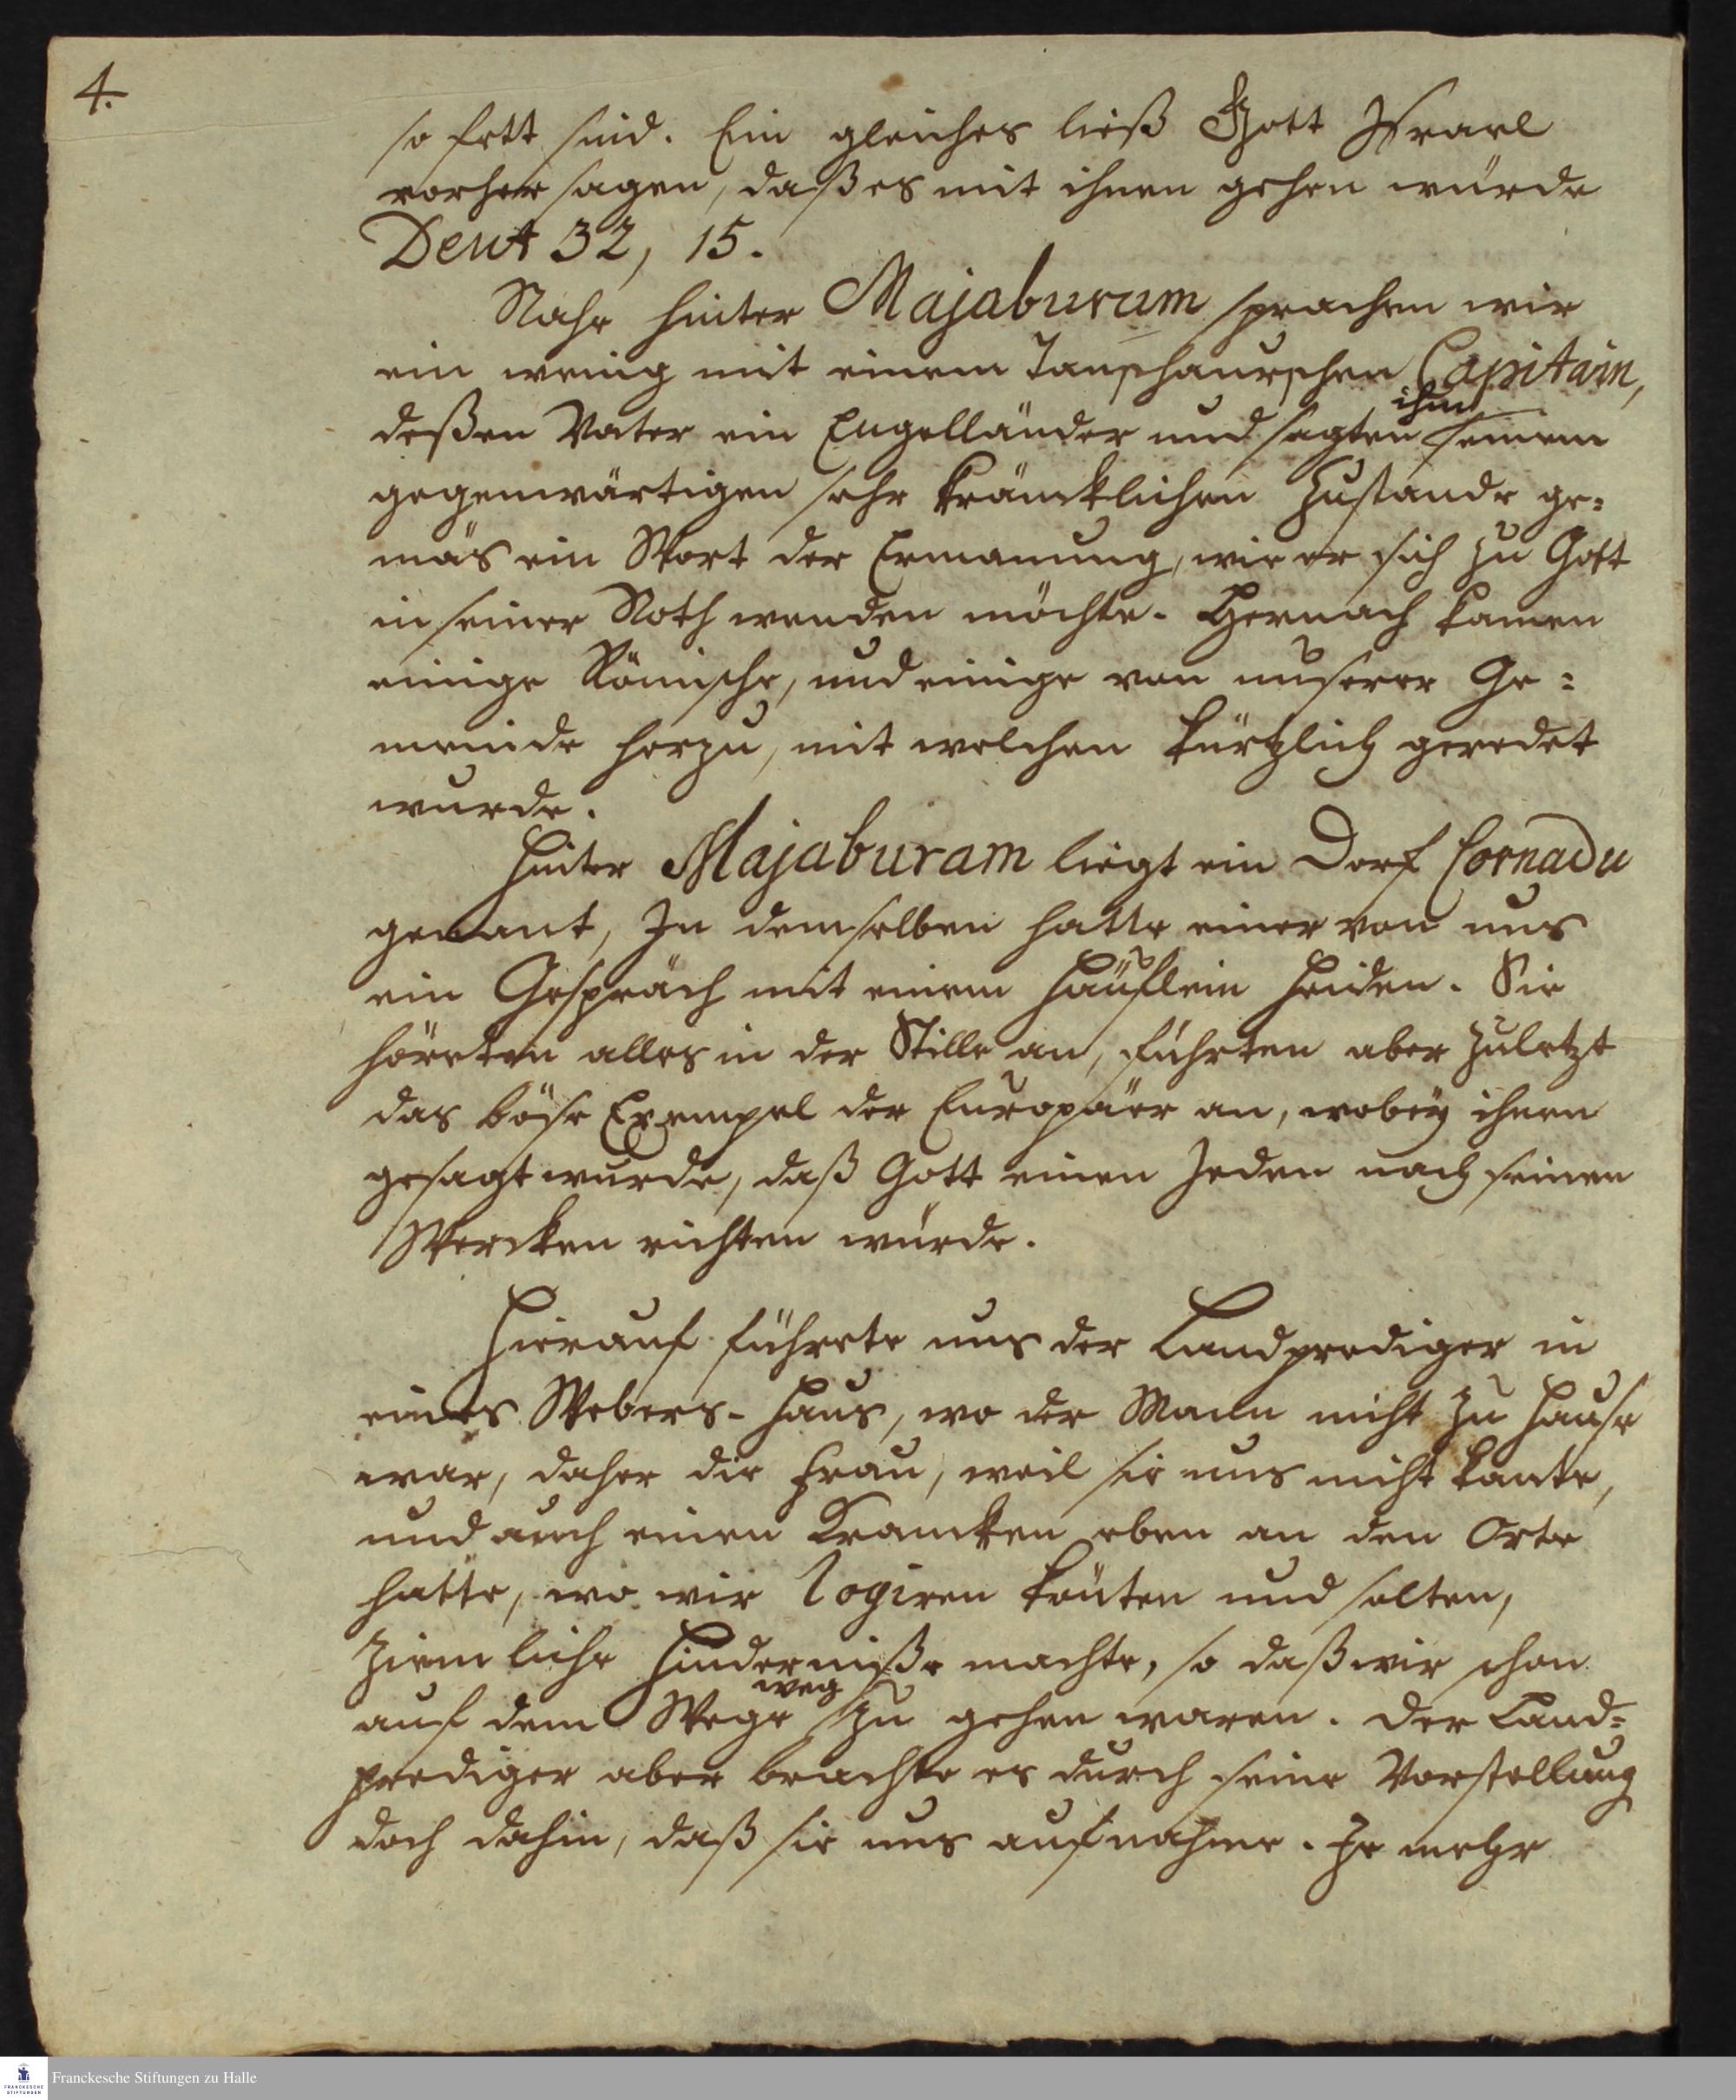 4.
so fett sind. Ein gleiches ließ Gott Israel
vorher sagen, daß es mit ihnen gehen würde
Deut 32, 15.
Nahe hinter Majaburam sprachen wir
ein wenig mit einem Tanschaurschen Capitain,
deßen Vater ein Engelländer und sagten ihm seinem
gegenwärtigen sehr kräncklichen Zustande ge=
mäs ein Wort der Ermanung, wie er sich zu Gott
in seiner Noth wenden möchte. Hernach kamen
einige Römische, und einige von unserer Ge=
meinde herzu, mit welchen kürtzlich geredet
wurde.
Hinter Majaburam liegt ein Dorf Cornadu
genant, In demselben hatte einer von uns
ein Gespräch mit einem Häuflein Heiden. Sie
höreten alles in der Stille an, führten aber zuletzt
das böse Exempel der Europäer an, wobey ihnen
gesagt wurde, daß Gott einen Jeden nach seinen
Wercken richten würde.
Hierauf führete uns der Landprediger in
eines Webers-Haus, wo der Mann nicht zu Hause
war, daher die Frau, weil sie uns nicht kante,
und auch einen Krancken eben an den Orte
hatte, wo wir logiren könten und solten,
Ziemliche Hinderniße machte, so daß wir schon
auf dem Wege weg zu gehen waren. Der Land=
prediger aber brachte es durch seine Vorstellung
doch dahin, daß sie uns aufnahme. Je mehr
Franckesche Stiftungen zu Halle